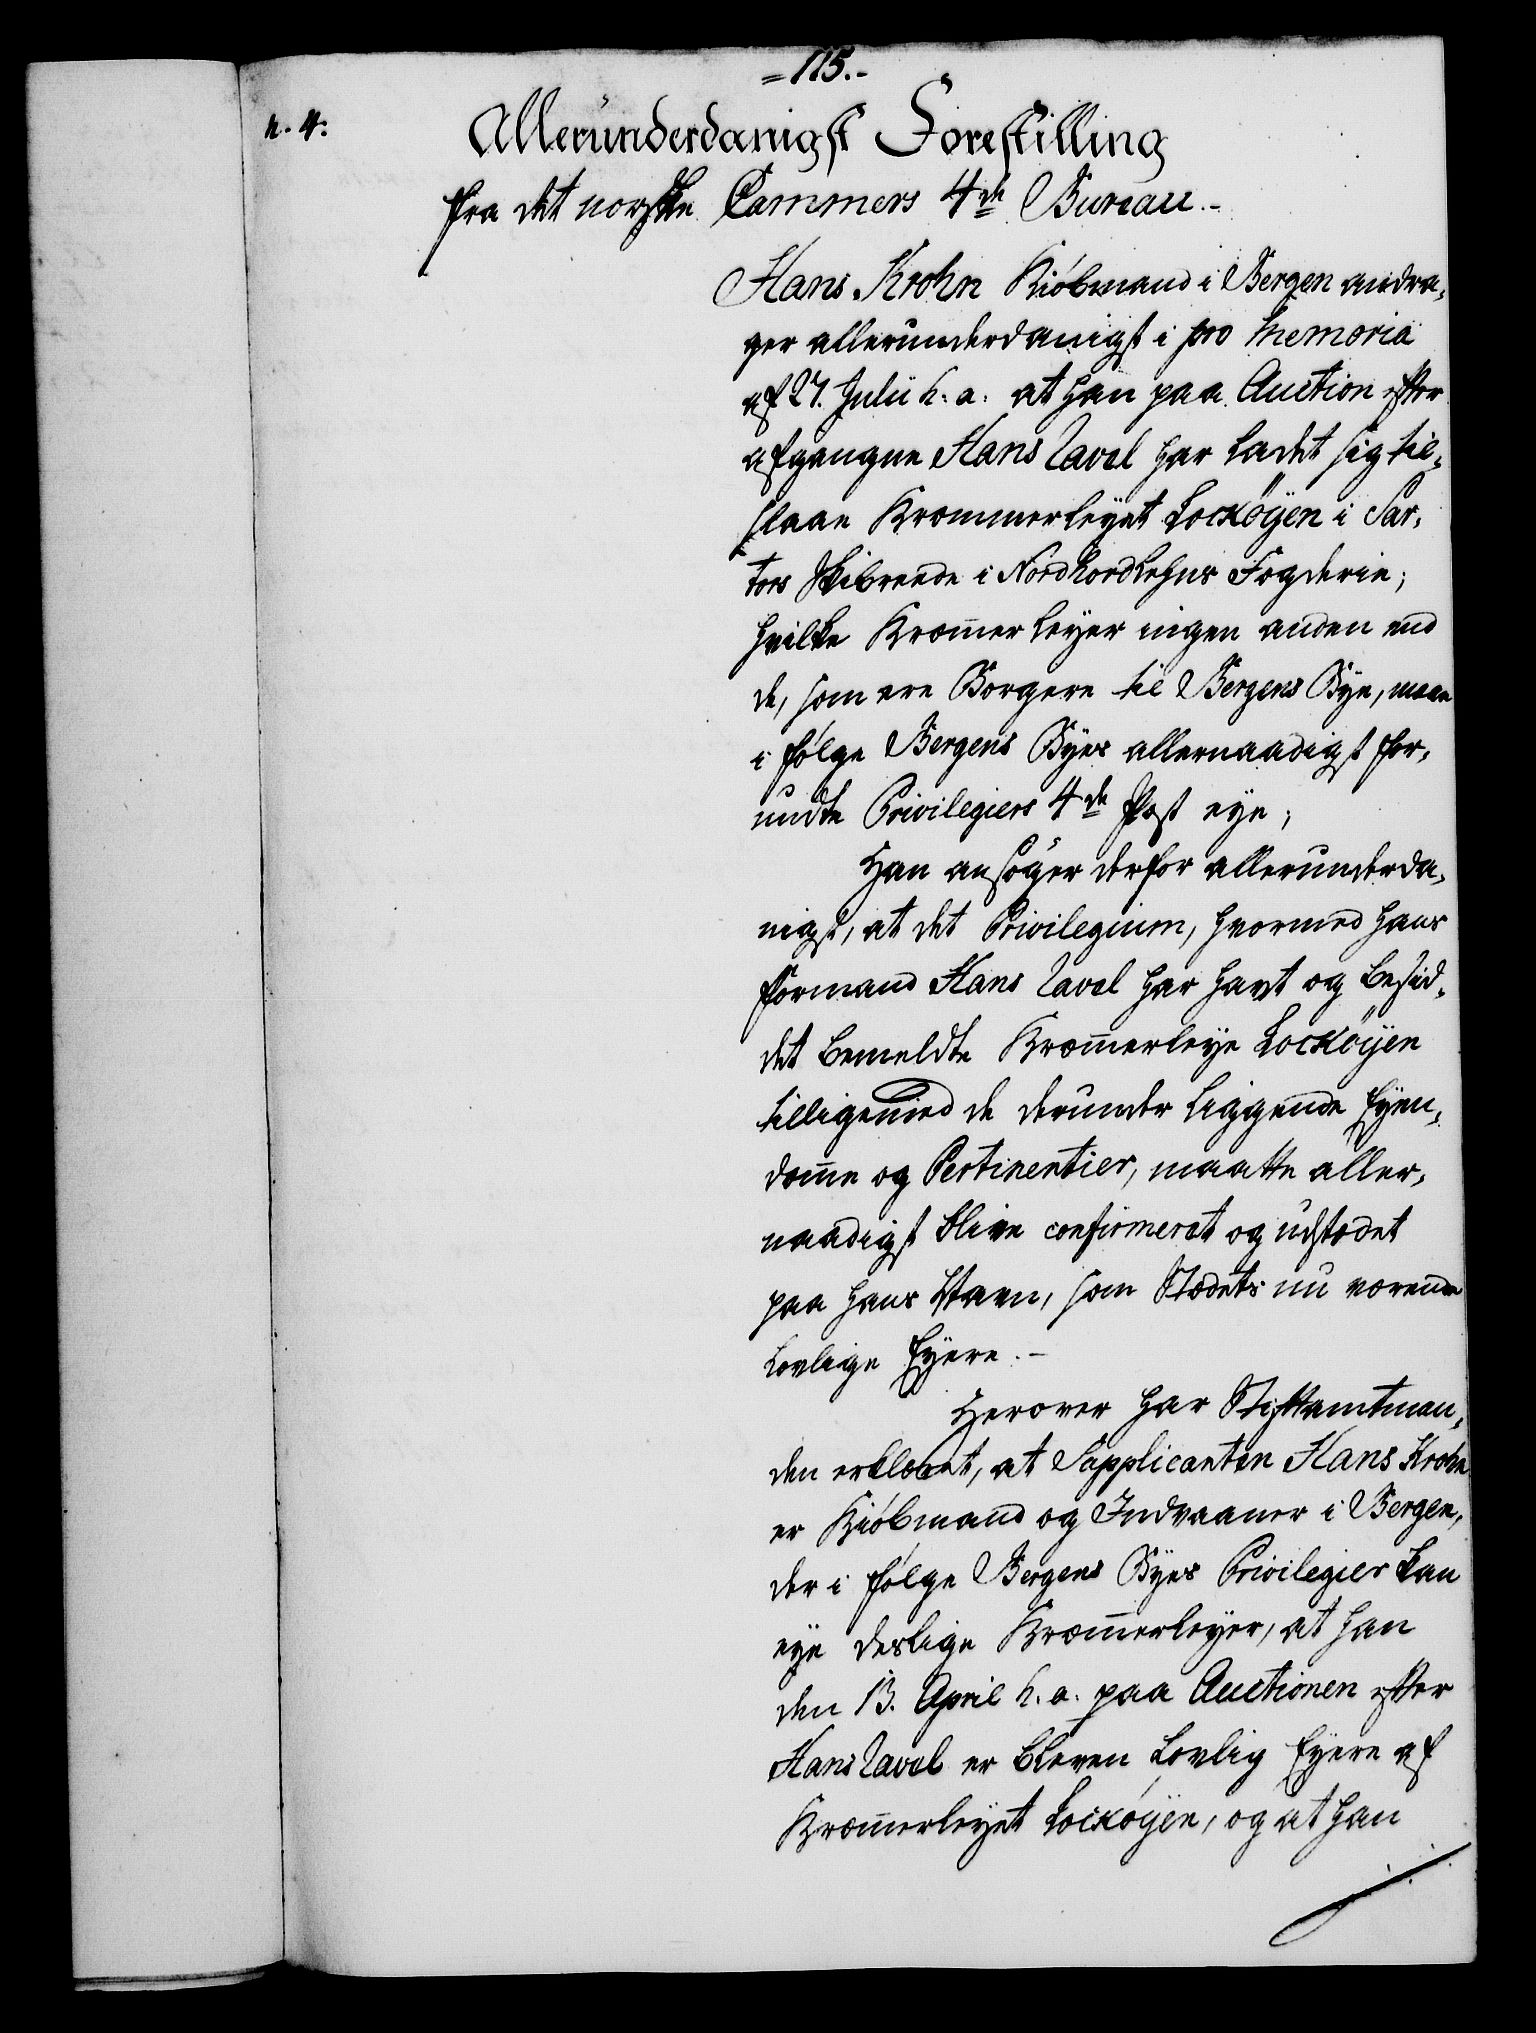 = 115. -
n. 4:
Allerunderdanigst Forestilling
fra det norske Cammers 4de Bureau. -
Hans Krohn Kiöbmand i Bergen andra,
ger allerunderdanigst i pro Memoria
af 27. Julii h: a: at han paa Auction efter
afgangne Hans Tavel har ladet sig til,
slaae Krommerleyet Lockøÿen i Sar,
tors Skibrende i Nordhordlehns Fogderie;
hvilke Kromerleyer ingen anden end
de, som ere Borgere til Bergens Bye, maae
i følge Bergens Byes allernaadigst for,
undte Privilegiers 4de Post eye;
Han ansøger derfor allerunderda,
nigst, at det Privilegium, hvormed hans
Formand Hans Tavel har havt og besid,
det bemeldte Kromerleye Lockøÿen
tilligemed de derunder liggende Eÿen,
domme og Pertinentier, maatte aller,
naadigst blive confirmeret og udstædet
paa hans Navn, som Stædets nu værende
lovlige Eÿere. -
Herover har Stiftamtman,
den erklæret, at Supplicanten Hans Krohn
er Kiöbmand og Indvaaner i Bergen,
der i følge Bergens Byes Privilegier kan
eye deslige Kromerleyer, at han
den 13. April h. a. paa Auctionen efter
Hans Tavel er bleven lovlig Eÿere af
Kromerleyet Lockøÿen, og at han